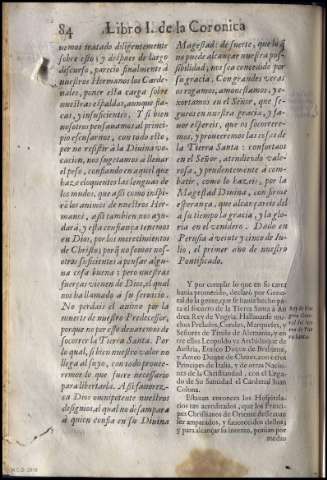 84 Libro I. de la Coronica
nemos tratado diligentemente
sobre esto; y despues de largo
discurso, pareciò finalmente à
nuestros Hermanos los Carde-
nales, poner esta carga sobre
nuestras espaldas, aunque fla-
cas, y insuficientes. Y si bien
nosotros pensaramos al princi-
pio escusarnos, con todo esso,
por no resistir à la Divina vo-
cacion, nos sugetamos a llevar
el peso, confiando en aquel que
haze eloquentes las lenguas de
los mudos, que assi como inspi-
rò los animos de nuestros Her-
manos, assi tambien nos ayu-
darà, y esta confiança tenemos
en Dios, por los merecimientos
de Christo; porq̃ no somos nos-
otros suficientes à pensar algu-
na cosa buena; pero nuestras
fuerças vienen de Dios, el qual
nos ha llamado à su servicio.
No perdais el animo por la
muerte de nuestro Predecessor,
porque no por esso dexaremos de
socorrer la Tierra Santa. Por
lo qual, si bien nuestro valor no
llega al suyo, con todo procu-
raremos lo que fuere necessario
para libertarla. Assi favorez-
ca Dios omnipotente nuestros
designios, al qual no desampara
à quien confia en su Divina
Magestad: de suerte, que lo q̃
no puede alcançar nuestra pos-
sibilidad, nos sea concedido por
su gracia. Con grandes veras
os rogamos, amonestamos, y e-
xortamos en el Señor, que se-
gueis en nuestra gracia, y fa-
vor espereis, que os socorrere-
mos, y proveremos las cosas de
la Tierra Santa: confortaos
en el Señor, atendiendo vale-
rosa, y prudentemente à comba-
tir, como lo hazeis, por la
Magestad Divina, con firme
esperança, que alcançareis del
à su tiempo la gracia, y la glo-
ria en el venidero. Dado en
Perosia à veinte y cinco de Iu-
lio, el primer año de nuestro
Pontificado.
Y por cumplir lo que en su carta
havia prometido, declarò por Gene-
ral de la gente, que se havia hecho pa-
ra el socorro de la Tierra Santa à An-
drea Rey de Vngria. Hallaronse mu-
chos Prelados, Condes, Marqueses, y
Señores de Titulo de Alemania, y en-
tre ellos Leopoldo vi. Archiduque de
Austria, Enrico Duque de Brabante,
y Anteo Duque de Cleues, con otros
Principes de Italia, y de otras Nacio-
nes de la Christiandad, con el Lega-
do de Su Santidad el Cardenal Juan
Colona.
Estavan entonces los Hospitala-
rios tan acreditados, que los Princi-
pes Christianos de Oriente desseavan
ser amparados, y favorecidos dellos;
y para alcançar su intento, ponian por
medio